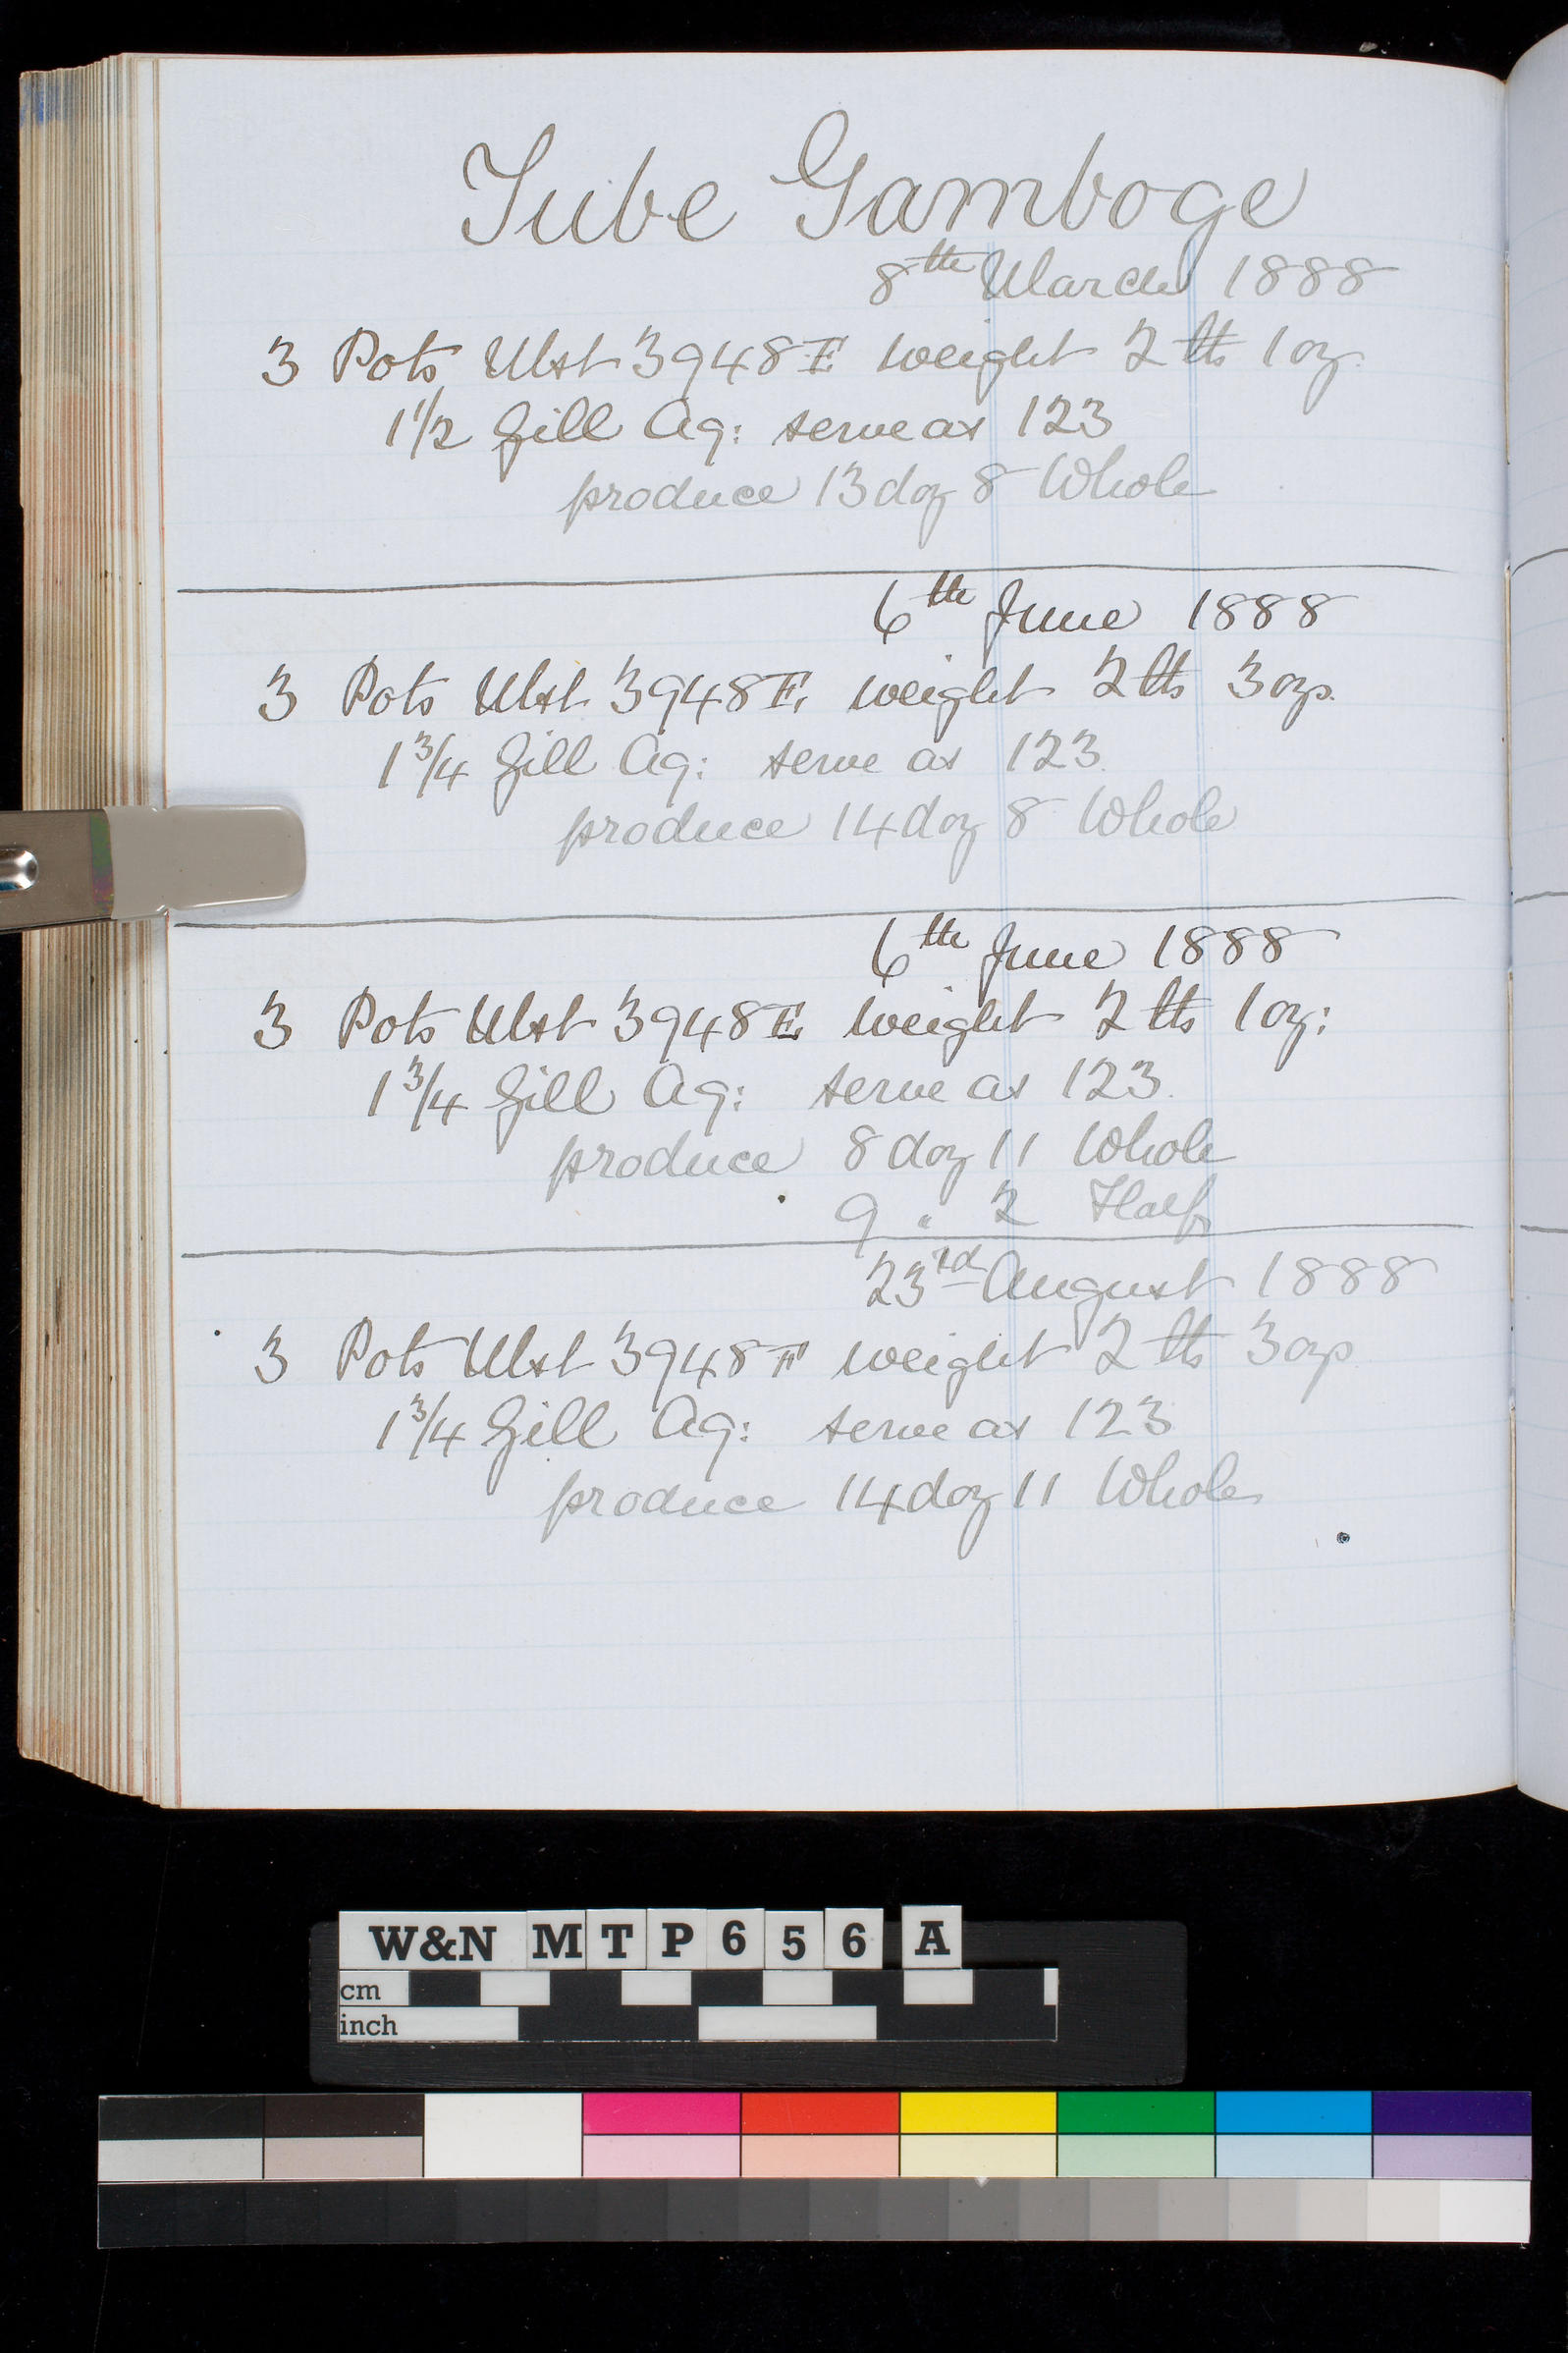 Tube Gamboge
8th March 1888
3 Pots Mst 3948E weight 2 lbs 1 oz.
1 1/2 Gill Aq: serve as 123
produce 13 doz 8 Whole
6th June 1888
3 Pots Mst 3948E. weight 2 lbs 3 ozs.
1 3/4 Gill Aq: serve as 123.
produce 14 doz 8 Whole
6th June 1888
3 Pots Mst 3948E weight 2 lbs 1 oz:
1 3/4 Gill Aq: serve as 123.
produce 8 doz 11 Whole
9 " 2 Half
23rd August 1888
3 Pots Mst 3948F weight 2 lbs 3 ozs
1 3/4 Gill Aq: serve as 123
produce 14 doz 11 Whole
W&N MTP656 A
cm
inch